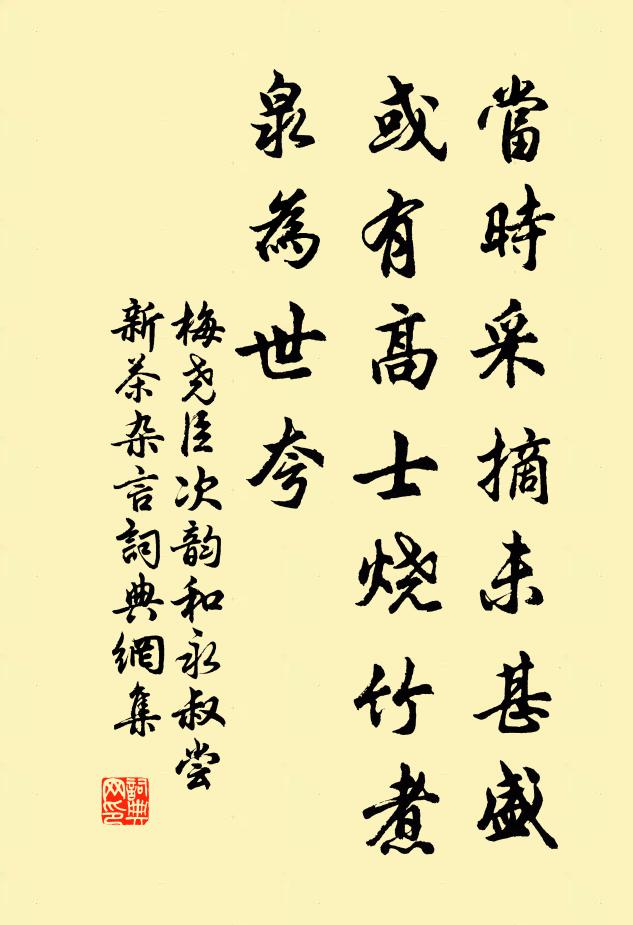 當時采摘未甚盛
或有高士烧竹煮
泉為世夸
梅尧臣次韵和永叔尝
新茶杂言詞典網集
詞典
网印